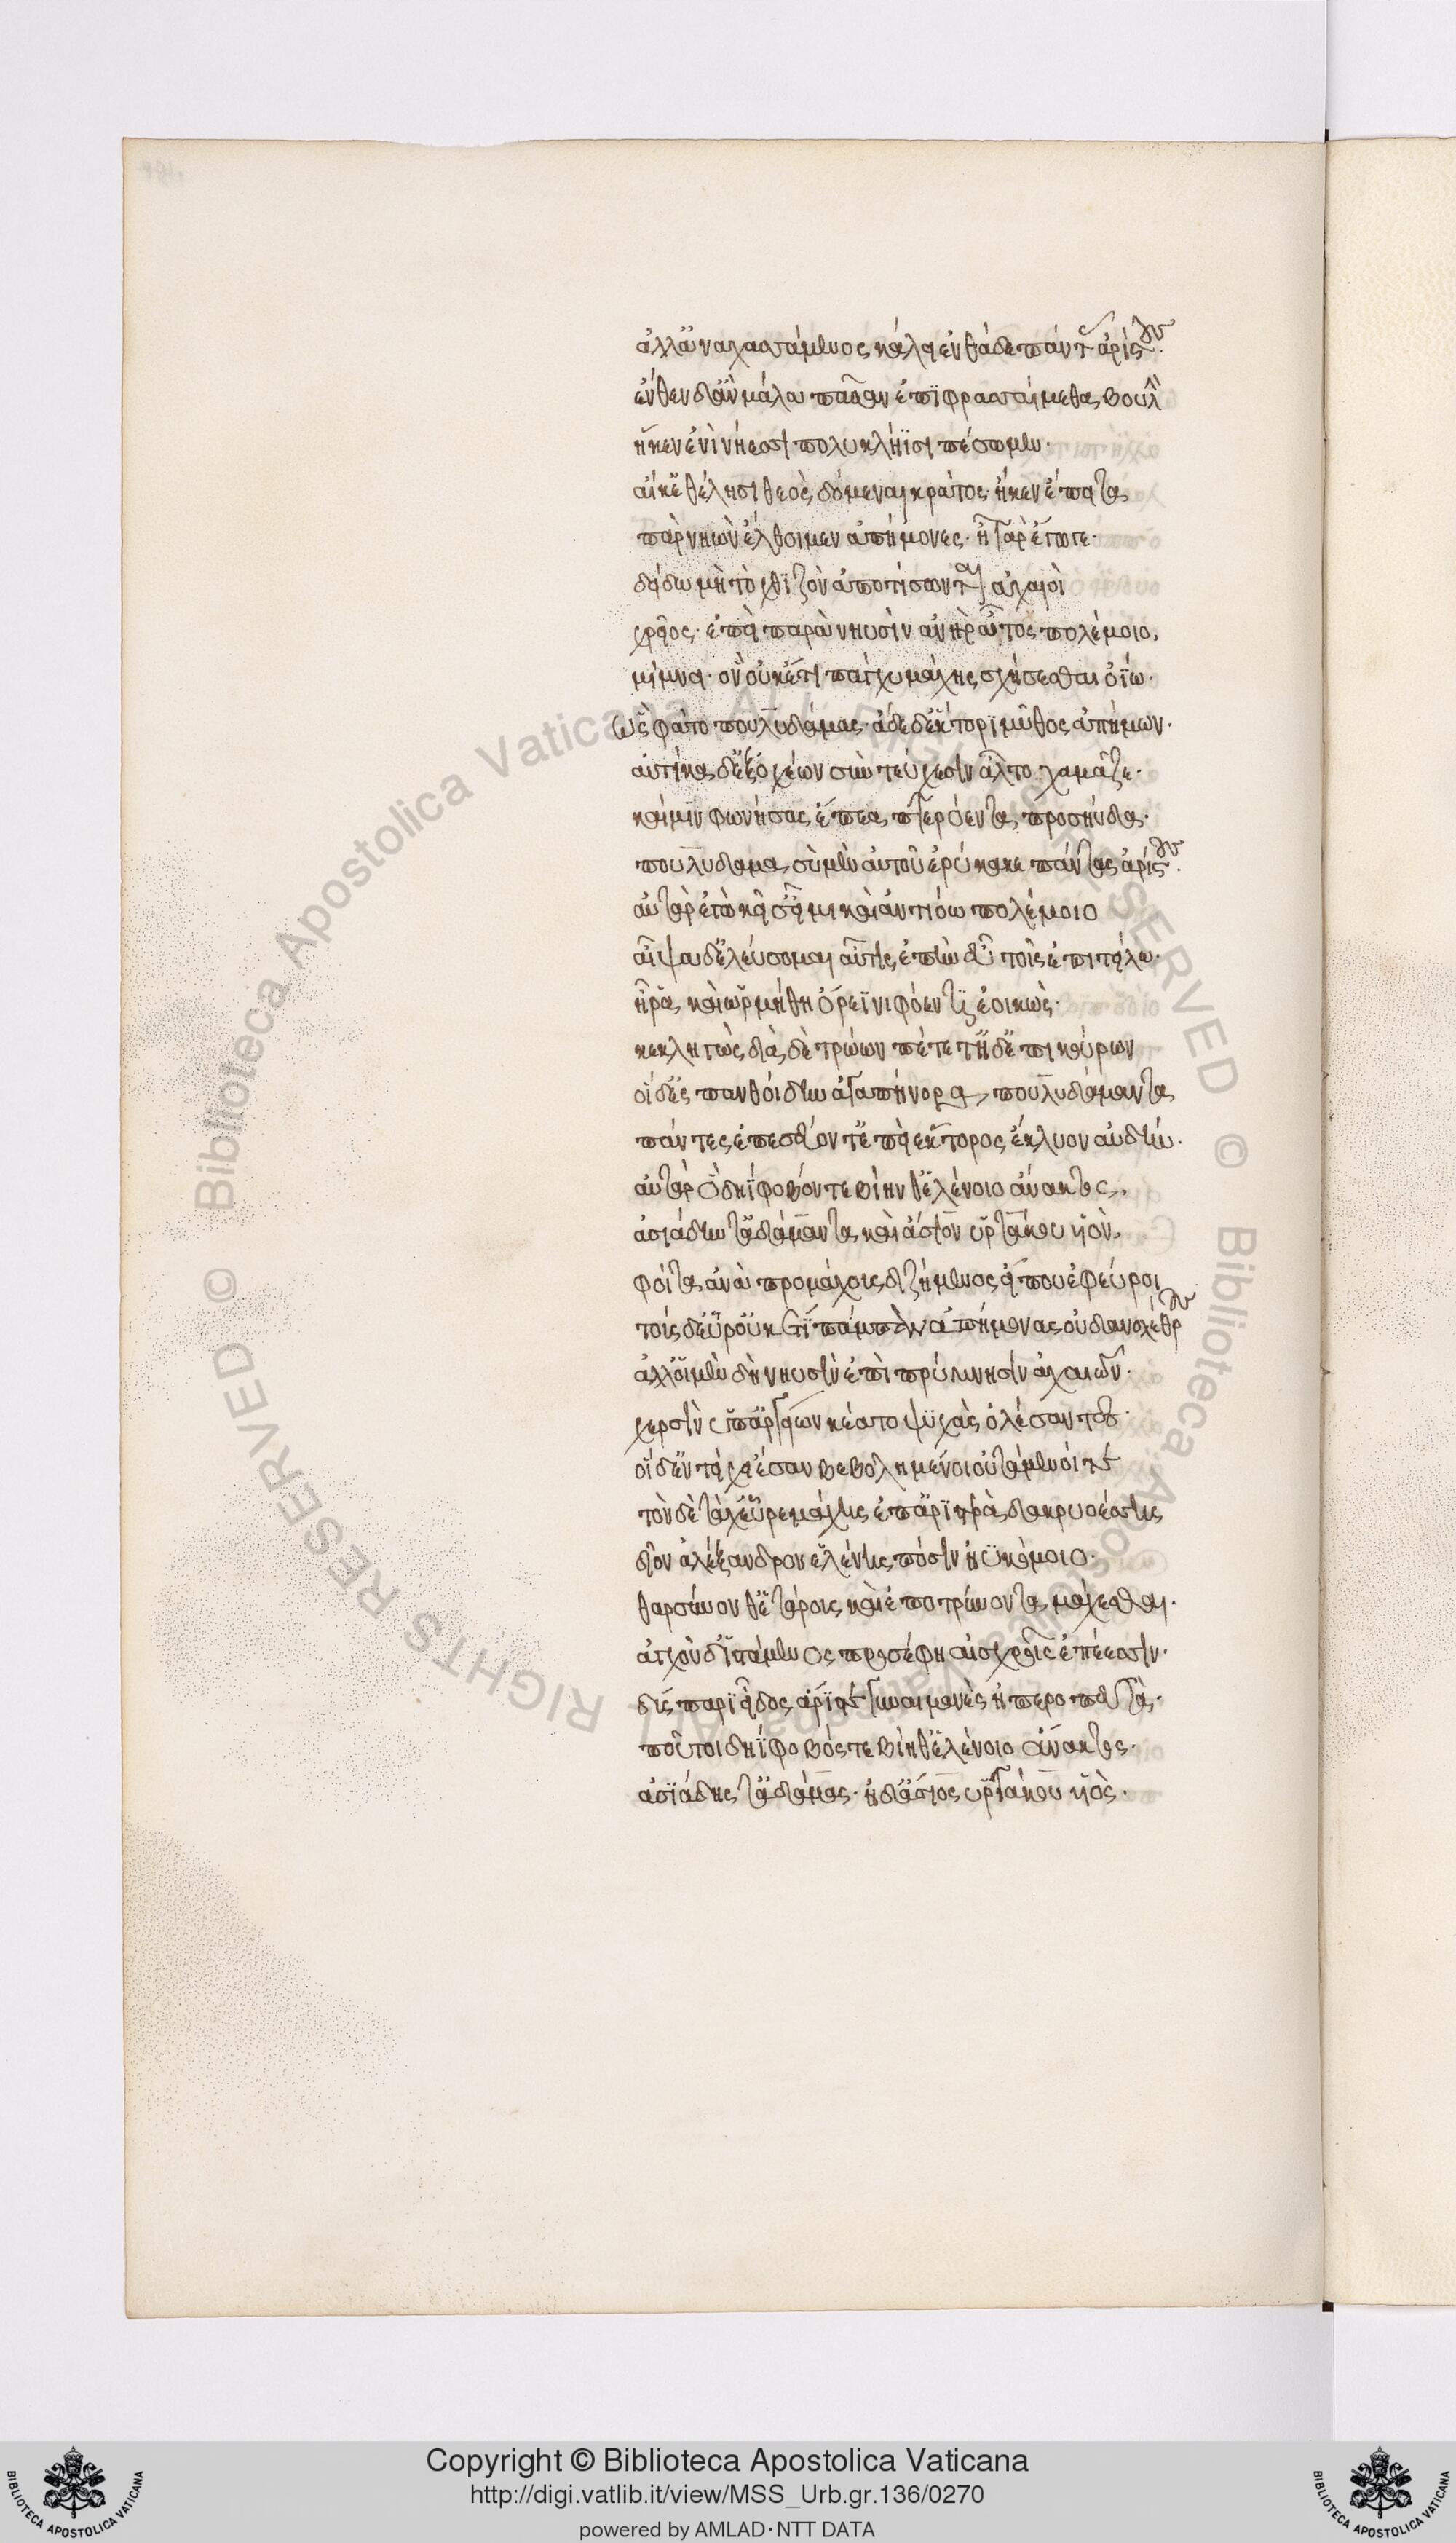 ἀλλ' ἀναχασσάμενος κάλει ἐνθάδε πάντας ἀρίστους.
ἔνθεν δ' ἂν μάλα πᾶσαν ἐπιφρασσαίμεθα βουλὴν
ἤ κεν ἐνὶ νήεσσι πολυκλήϊσι πέσωμεν.
αἴ κ' ἐθέλησι θεὸς δόμεναι κράτος· ἤ κεν ἔπειτα
πὰρ νηῶν ἔλθοιμεν ἀπήμονες· ἦ γὰρ ἔγωγε.
δείδω μὴ τὸ χθιζὸν ἀποτίσωνται ἀχαιοὶ
χρεῖος· ἐπεὶ παρὰ νηυσὶν ἀνὴρ ἆτος πολέμοιο,
μίμνει· ὃν οὐκέτι πάγχυ μάχης σχήσεσθαι ὀΐω.
ὣς φάτο πουλυδάμας· ἅδε δ' ἕκτορι μῦθος ἀπήμων.
αὐτίκα δ' ἐξ ὀχέων σὺν τεύχεσιν ἆλτο χαμᾶζε.
καί μιν φωνήσας ἔπεα πτερόεντα προσηύδα.
πουλυδάμα, σὺ μὲν αὐτοῦ ἐρύκακε πάντας ἀρίστους.
αὐτὰρ ἐγὼ κεῖσ' εἶμι καὶ ἀντιόω πολέμοιο
αἶψα δ' ἐλεύσομαι αὖτις, ἐπὴν εὖ τοῖς ἐπιτείλω.
ἦ ῥα, καὶ ὡρμήθη ὄρεϊ νιφόεντι ἐοικὼς.
κεκληγὼς, διὰ δὲ τρώων πέτετ' ἠδ' ἐπικούρων
οἱ δ' ἐς πανθοίδην ἀγαπήνορα, πουλυδάμαντα
πάντες ἐπεσσεύοντ' ἐπεὶ ἕκτορος ἔκλυον αὐδήν.
αὐτὰρ ὃ δηΐφοβόν τε βίην θ' ἑλένοιο ἄνακτος,
ἀσιάδην τ' ἀδάμαντα, καὶ ἄσιον ὑρτάκου υἱὸν,
φοίτα ἀνὰ προμάχοις διζήμενος εἴ που ἐφεύροι
τοὺς δ' εὗρ' οὐκέτι πάμπαν ἀπήμονας οὐδ' ἀνολέθρους
ἀλλ' οἱ μὲν δὴ νηυσὶν ἐπὶ πρύμνησιν ἀχαιῶν.
χερσὶν ὑπ' ἀργείων κέατο ψυχὰς ὀλέσαντες.
οἱ δ' ἐν τείχει ἔσαν βεβολημένοι οὐτάμενοί τε
τὸν δὲ τάχ' εὗρε μάχης ἐπ' ἀριστερὰ δακρυοέσσης
δῖον ἀλέξανδρον ἑλένης πόσιν ἠϋκόμοιο.
θαρσύνονθ' ἑτάροις καὶ ἐποτρύνοντα μάχεσθαι.
ἀγχοῦ δ' ἱστάμενος προσέφη αἰσχροῖς ἐπέεσσιν.
δύσπαρι εἶδος ἄριστε γυναιμανὲς ἠπεροπευτὰ.
ποῦ τοι δηΐφοβός τε βίη θ' ἑλένοιο ἄνακτος.
ἀσιάδης τ' ἀδάμας· ἠδ' ἄσιος ὑρτάκου υἱὸς.
Copyright © Biblioteca Apostolica Vaticana
http://digi.vatlib.it/view/MSS_Urb.gr.136/0270
powered by AMLAD·NTT DATA